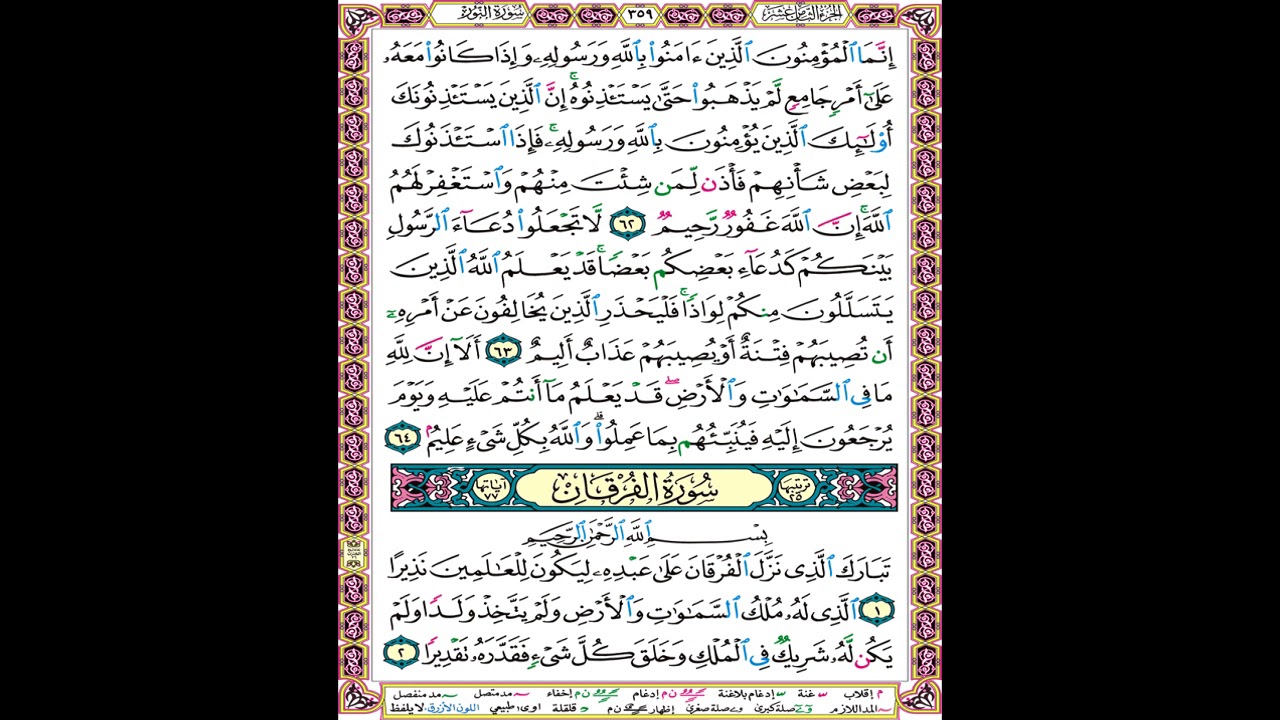 الجزء الثامن عشر ٣٥٩ سورة النور
إِنَّمَا ٱلْمُؤْمِنُونَ ٱلَّذِينَ ءَامَنُوا۟ بِٱللَّهِ وَرَسُولِهِۦ وَإِذَا كَانُوا۟ مَعَهُۥ
عَلَىٰٓ أَمْرٍ جَامِعٍ لَّمْ يَذْهَبُوا۟ حَتَّىٰ يَسْتَـْٔذِنُوهُ ۚ إِنَّ ٱلَّذِينَ يَسْتَـْٔذِنُونَكَ
أُو۟لَـٰٓئِكَ ٱلَّذِينَ يُؤْمِنُونَ بِٱللَّهِ وَرَسُولِهِۦ ۚ فَإِذَا ٱسْتَـْٔذَنُوكَ
لِبَعْضِ شَأْنِهِمْ فَأْذَن لِّمَن شِئْتَ مِنْهُمْ وَٱسْتَغْفِرْ لَهُمُ
ٱللَّهَ ۚ إِنَّ ٱللَّهَ غَفُورٌ رَّحِيمٌ ٦٢ لَّا تَجْعَلُوا۟ دُعَآءَ ٱلرَّسُولِ
بَيْنَكُمْ كَدُعَآءِ بَعْضِكُم بَعْضًا ۚ قَدْ يَعْلَمُ ٱللَّهُ ٱلَّذِينَ
يَتَسَلَّلُونَ مِنكُمْ لِوَاذًا ۚ فَلْيَحْذَرِ ٱلَّذِينَ يُخَالِفُونَ عَنْ أَمْرِهِۦٓ
أَن تُصِيبَهُمْ فِتْنَةٌ أَوْ يُصِيبَهُمْ عَذَابٌ أَلِيمٌ ٦٣ أَلَآ إِنَّ لِلَّهِ
مَا فِى ٱلسَّمَـٰوَٰتِ وَٱلْأَرْضِ ۖ قَدْ يَعْلَمُ مَآ أَنتُمْ عَلَيْهِ وَيَوْمَ
يُرْجَعُونَ إِلَيْهِ فَيُنَبِّئُهُم بِمَا عَمِلُوا۟ ۗ وَٱللَّهُ بِكُلِّ شَىْءٍ عَلِيمٌۢ ٦٤
ترتيبها ٢٥ سُورَةُ الْفُرْقَانِ آياتها ٧٧
بِسْمِ ٱللَّهِ ٱلرَّحْمَـٰنِ ٱلرَّحِيمِ
تَبَارَكَ ٱلَّذِى نَزَّلَ ٱلْفُرْقَانَ عَلَىٰ عَبْدِهِۦ لِيَكُونَ لِلْعَـٰلَمِينَ نَذِيرًا
١ ٱلَّذِى لَهُۥ مُلْكُ ٱلسَّمَـٰوَٰتِ وَٱلْأَرْضِ وَلَمْ يَتَّخِذْ وَلَدًا وَلَمْ
يَكُن لَّهُۥ شَرِيكٌ فِى ٱلْمُلْكِ وَخَلَقَ كُلَّ شَىْءٍ فَقَدَّرَهُۥ تَقْدِيرًا ٢
م إقلاب غنة إدغام بلاغنة ن م إدغام ن م إخفاء مد متصل مد منفصل
المد اللازم صلة كبرى صلة صغرى إظهار ن م قلقلة اوى: طبيعي اللون الأزرق: لا يلفظ